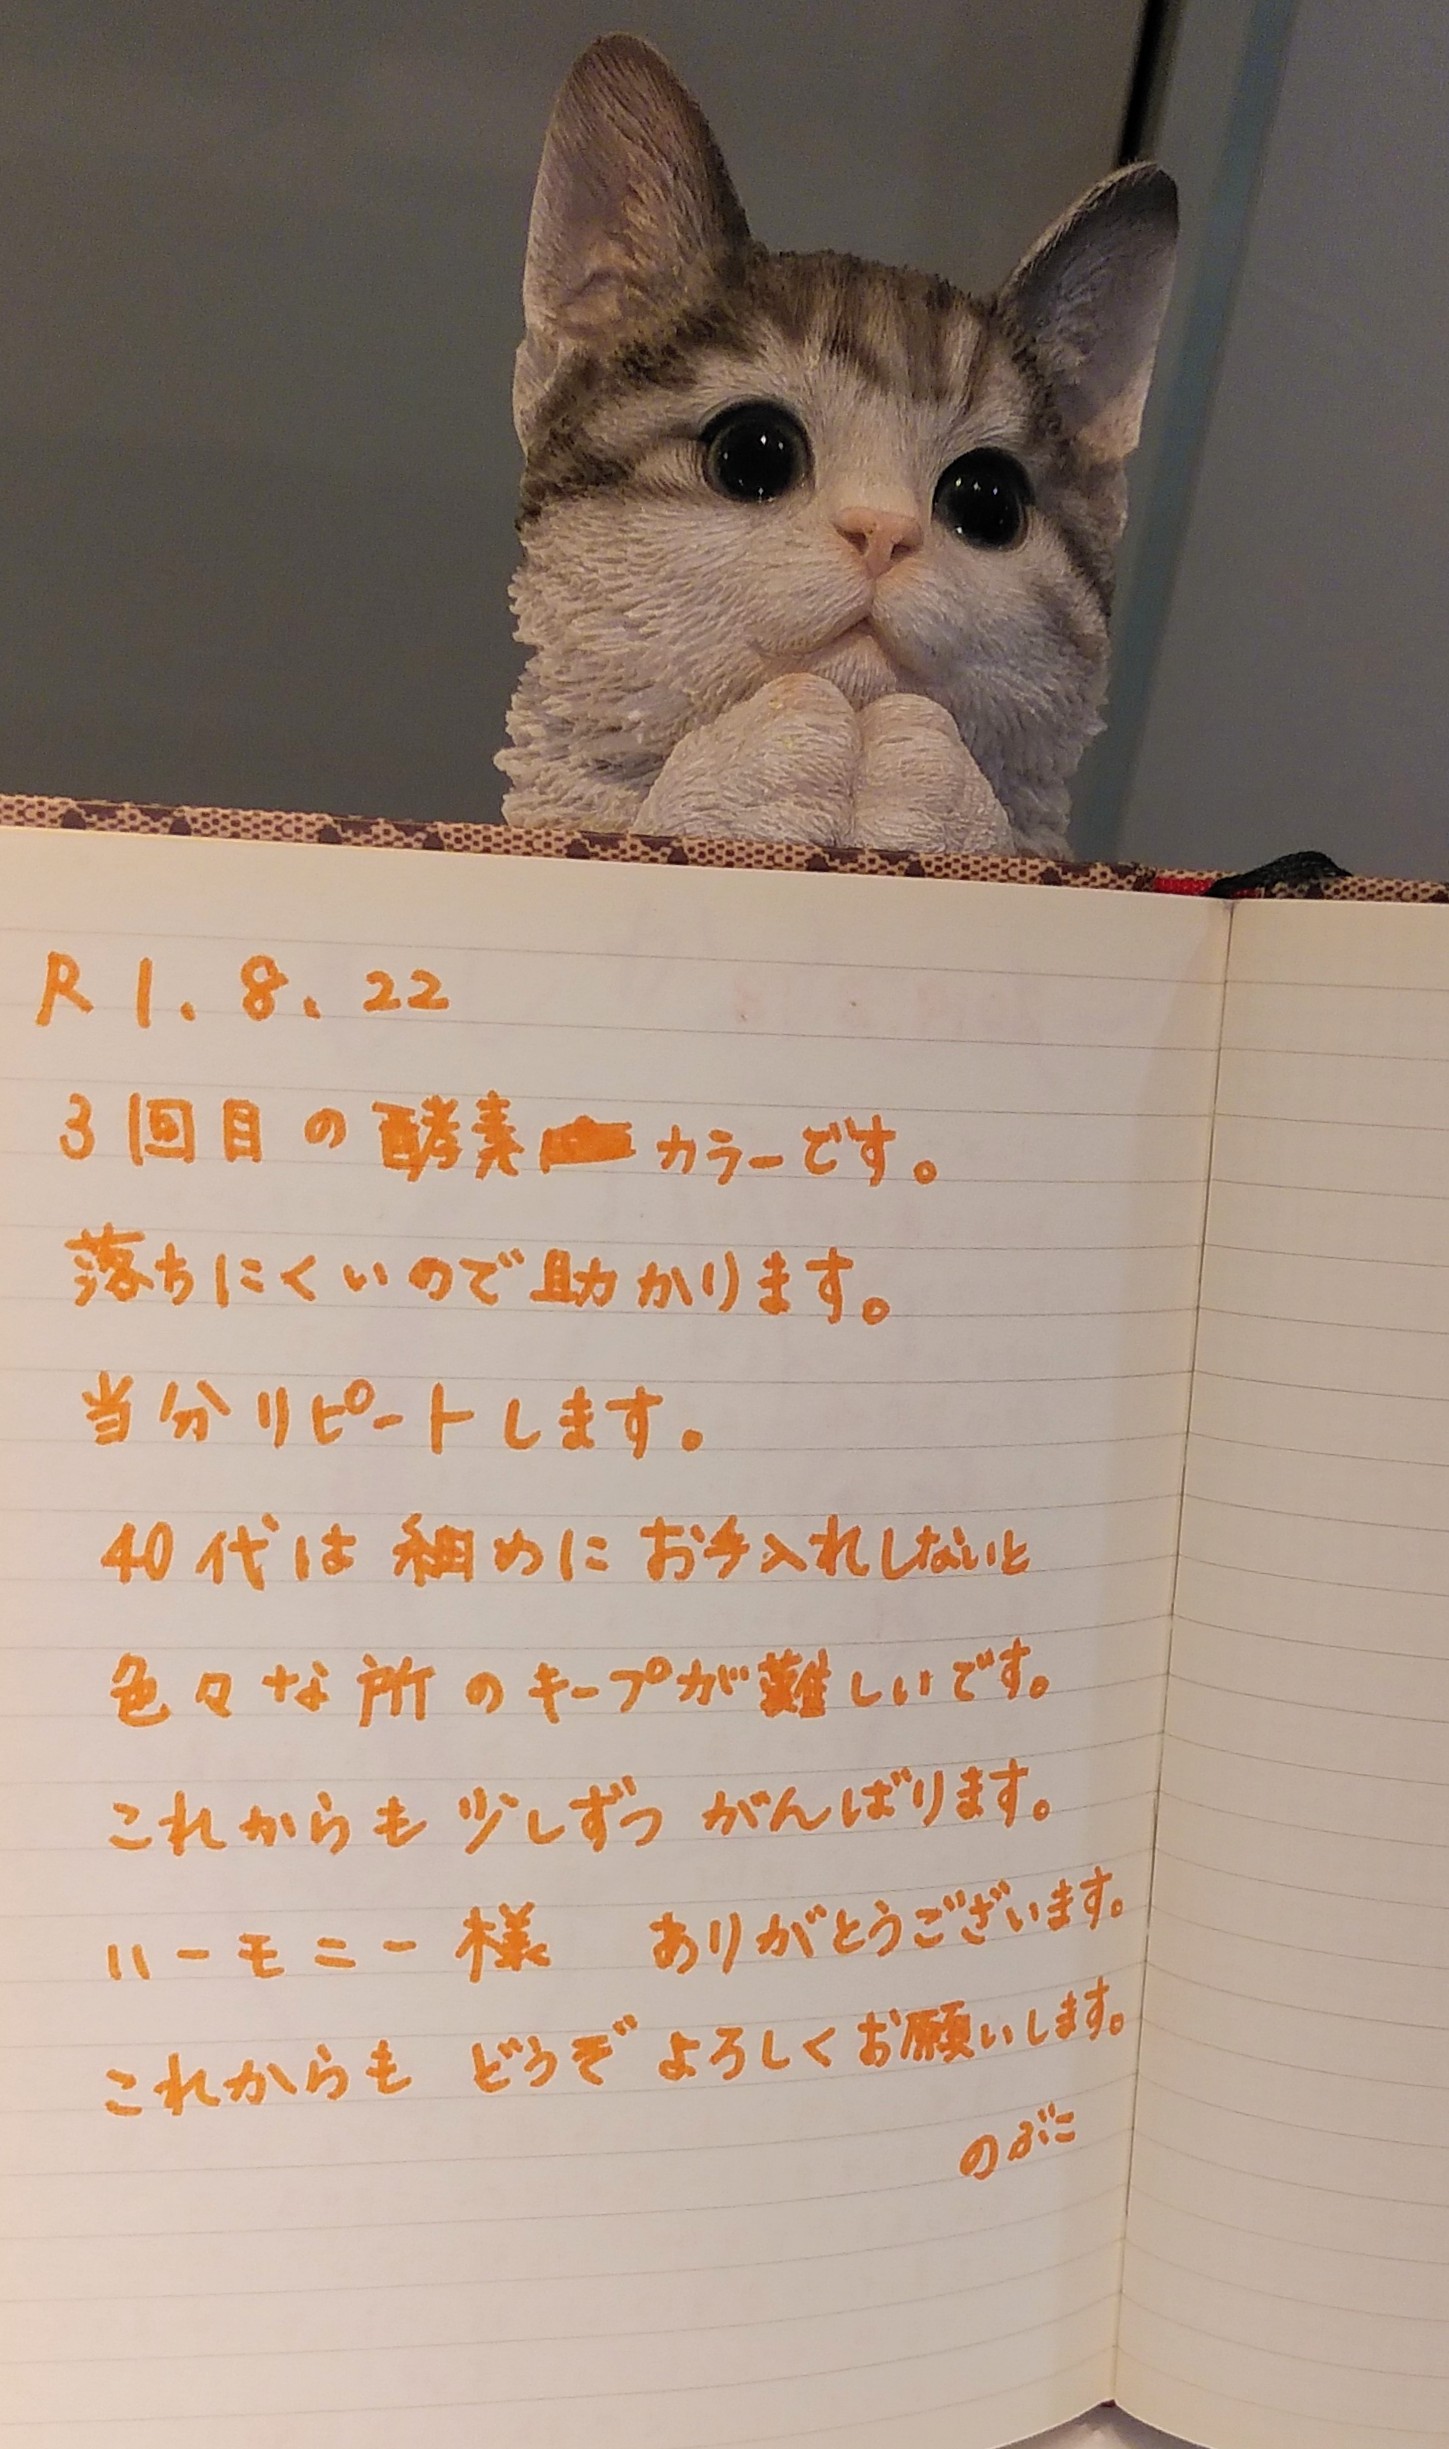 R1.8.22
3回目の酵素カラーです。
落ちにくいので助かります。
当分リピートします。
40代は細めにお手入れしないと
色々な所のキープが難しいです。
これからも少しずつがんばります。
ハーモニー様 ありがとうございます。
これからもどうぞよろしくお願いします。
のぶこ